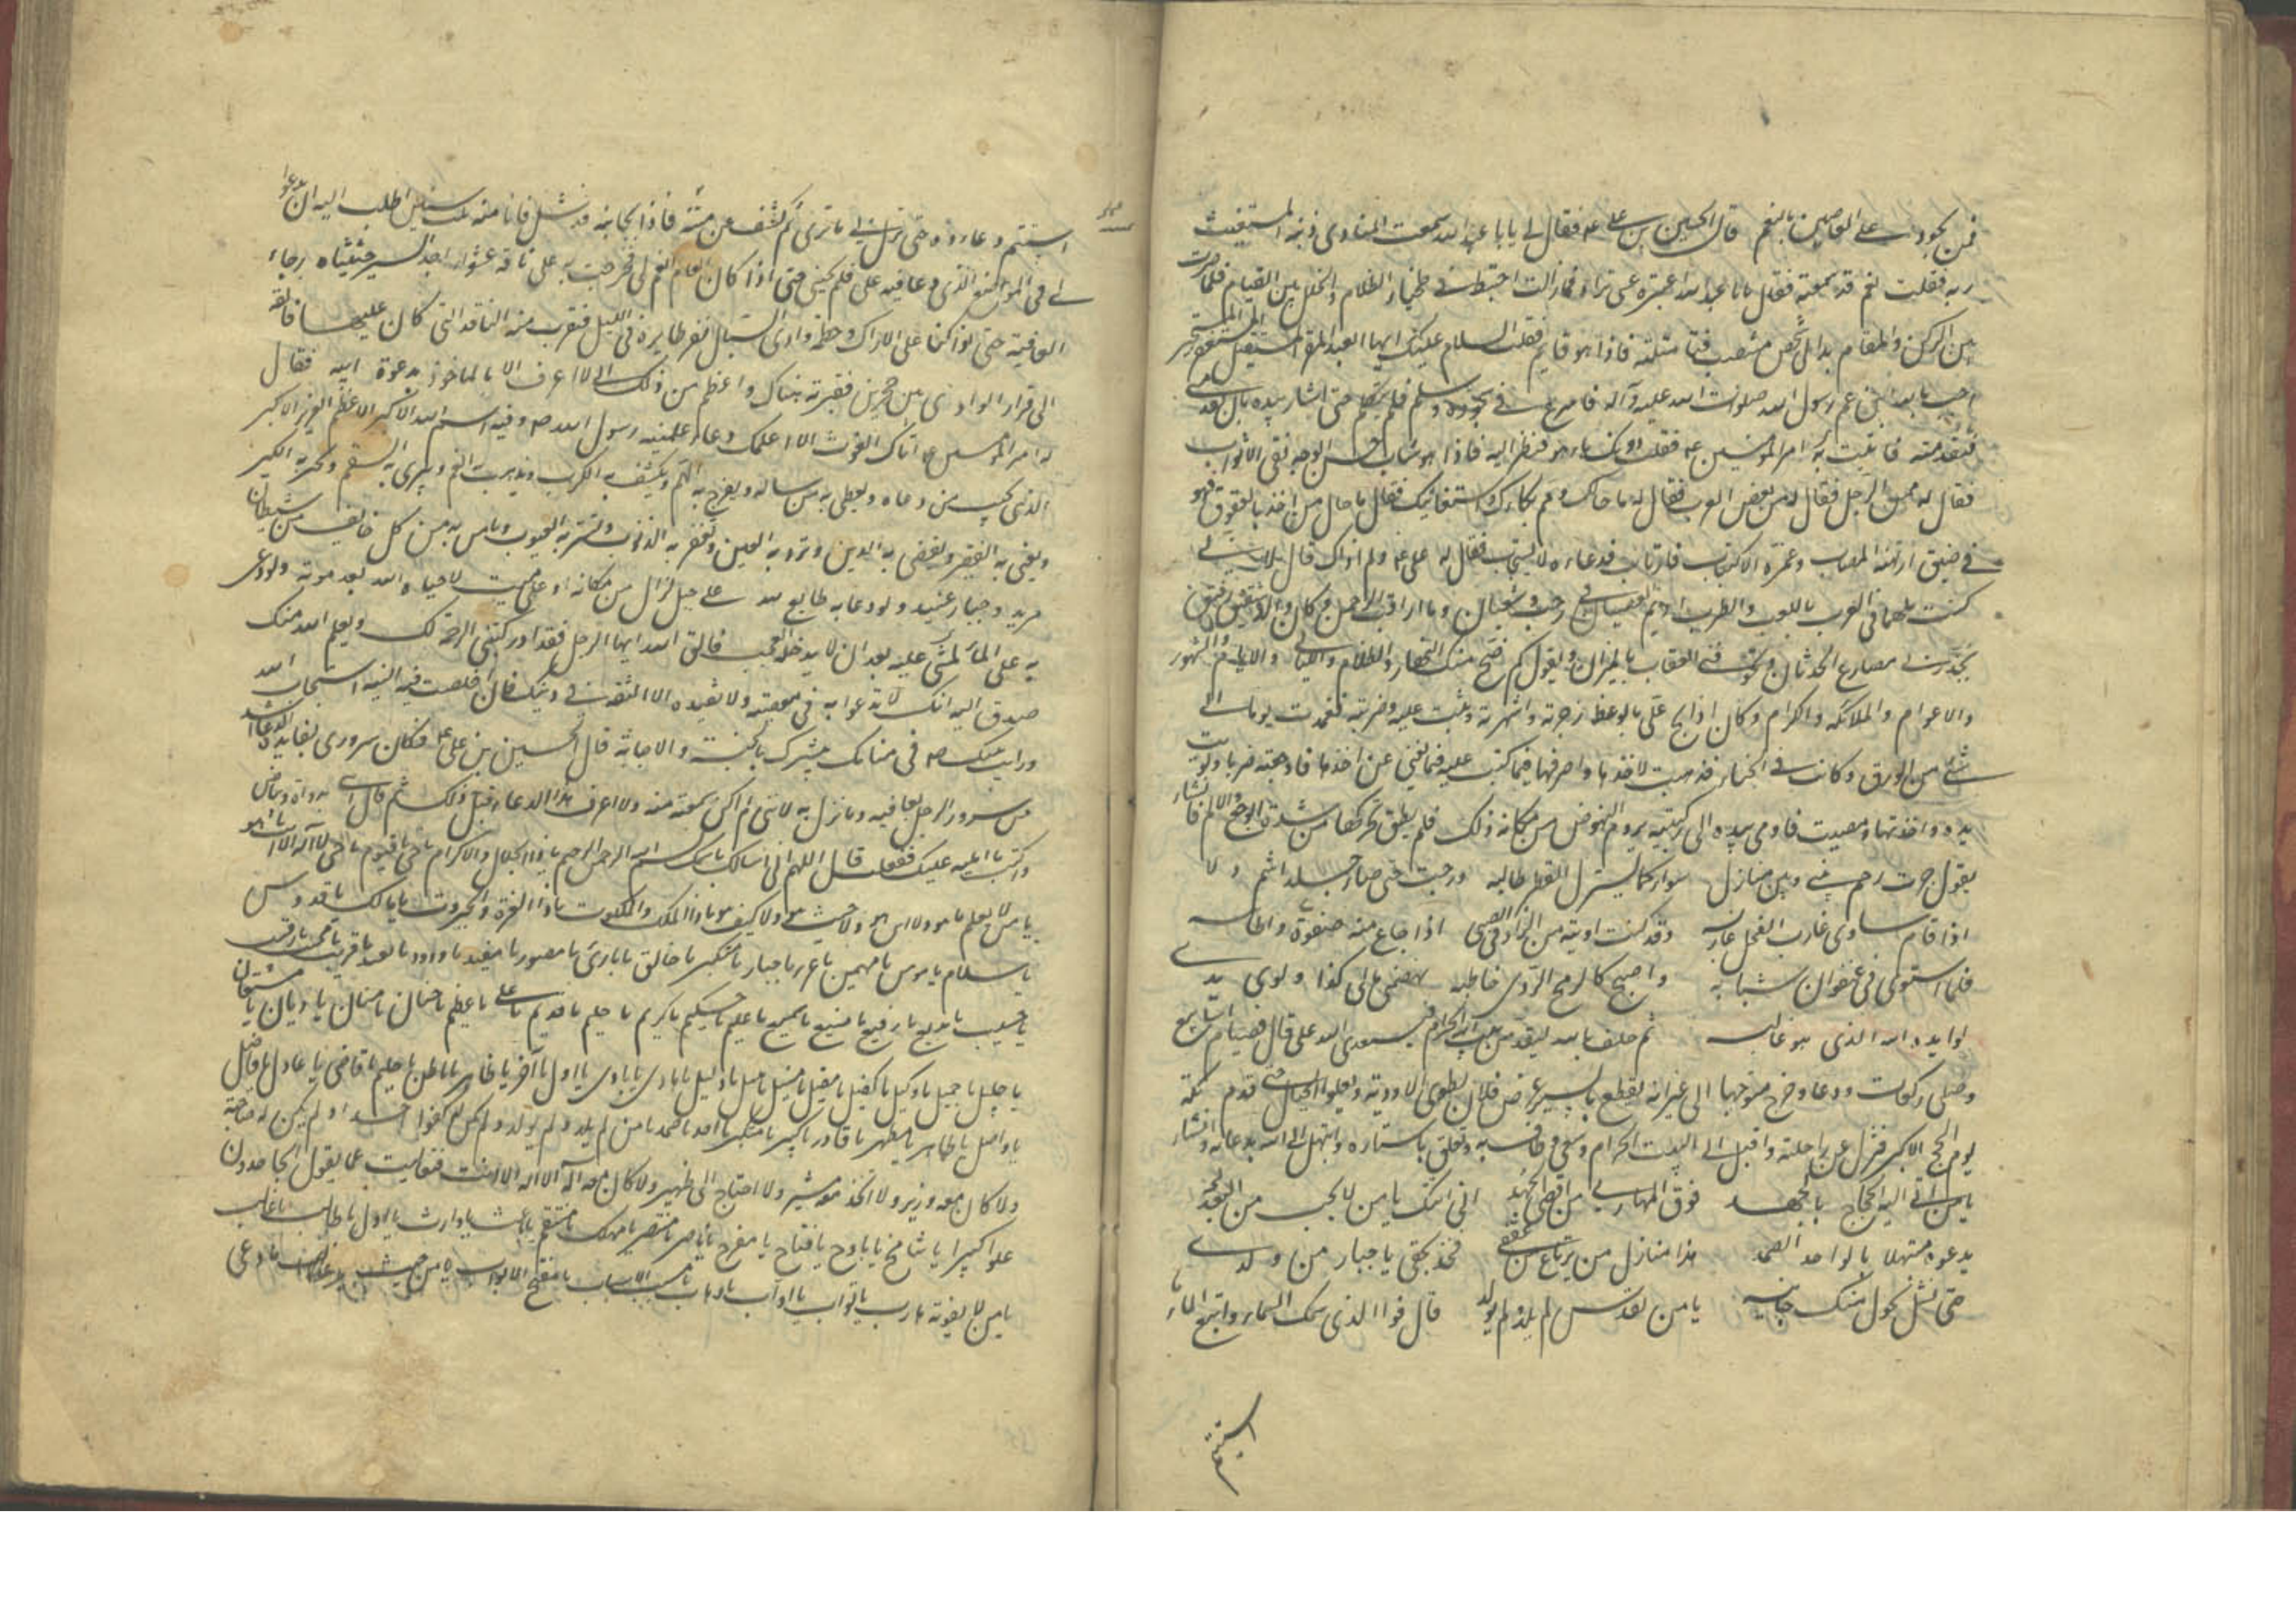 فمن يجود على العاصين بالنعم قال الحسين بن علي ع م فقال لي يا با عبد الله سمعت المنادي ذنبه المستغيث
ربه فقلت نعم قد سمعته فقال يا با عبد الله اعتبره عسى تراه فما زلت اختبط في طخياء الظلام واتخلل بين النيام فلما صرت
بين الركن والمقام بدا لي شخص منتصب فتاملته فاذا هو قايم فقلت السلام عليك ايها العبد المقر المستقيل المستغفر المستجير
اجب بالله ابن عم رسول الله صلوات الله عليه وآله فاسرع في سجوده وسلم فلم يتكلم حتى اشار بيده بان تقدمني
فتقدمته فاتيت به امير المؤمنين ع م فقلت دونك ها هو فنظر اليه فاذا هو شاب حسن الوجه نقي الاثواب
فقال له ممن الرجل فقال له من بعض العرب فقال له ما حالك ومم بكاؤك واستغاثتك فقال ما حال من اخذ بالعقوق فهو
في ضيق ارتهنه المصاب وغمره الاكتئاب فارتاب فدعاءه لا يستجاب فقال له علي ع م ولم ذاك قال لاني
كنت ملتهيا في العرب باللعب والطرب اديم العصيان في رجب وشعبان وما اراقب الرحمن وكان لي والد شفيق رفيق
يحذرني مصارع الحدثان ويخوفني العقاب بالنيران ويقول كم ضج منك النهار والظلام والليالي والايام والشهور
والاعوام والملائكة والكرام وكان اذا الح علي بالوعظ زجرته وانتهرته ووثبت عليه وضربته فعمدت يوما الى
شئ من الورق وكانت في الخباء فذهبت لاخذها واصرفها فيما كنت عليه فمانعني عن اخذها فاوجعته ضربا ولويت
يده واخذتها ومضيت فاومى بيده الى ركبتيه يروم النهوض من مكانه ذلك فلم يطق يحركها من شدة الوجع والالم فانشاء
يقول جرت رحم بيني وبين منازل سواء كما يستنزل القطر طالبه وربيت حتى صار جلدا شمردلا
اذا قام ساوى غارب الفحل غاربه وقد كنت اوتيه من الزاد في الصبى اذا جاع منه صفوة واطايبه
فلما استوى في عنفوان شبابه واصبح كالرمح الرديني خاطبه تهضمني مالي كذا ولوى يدي
لوى يده الله الذي هو غالبه ثم حلف بالله ليقدمن بيت الله الحرام فيستعدي الله علي قال فصيام اسابيع
وصلى ركعات ودعا وخرج متوجها الى عيرانه يقطع بالسير عرض الفلاة ويطوي الاودية ويعلو الجبال حتى قدم مكة
يوم الحج الاكبر فنزل عن راحلته واقبل الى البيت الحرام وسعى وطاف به وتعلق باستاره وابتهل الى الله بدعائه وانشاء
يا من اليه اتى الحجاج بالجهد فوق المهاري من اقصى البعد اني اتيتك يا من لا يخيب من
يدعوه مبتهلا بالواحد الصمد هذا منازل من يرتاع من عققي فخذ بحقي يا جبار من ولدي
حتى تشل بحول منك جانبه يا من تقدس لم يلد ولم يولد قال فوالذي سمك السماء وانبع الماء
استتم
استتم دعاءه حتى نزل بي ما ترى ثم كشف عن يمينه فاذا بجانبه قد شل فانا منذ ثلث سنين اطلب اليه ان يدعوا
لي في الموضع الذي دعا فيه علي فلم يجبني حتى اذا كان العام انعم لي فخرجت به على ناقة عشراء اجد السير حثيثا رجاء
العافية حتى اذا كنا على الاراك وحطمة وادي السباك نفر طاير في الليل فنفرت منه الناقة التي كان عليها فالقته
الى قرار الوادي بين حجرين فقبرته هناك واعظم من ذلك اني لا اعرف الا بالماخوذ بدعوة ابيه فقال
له امير المؤمنين ع م اتاك الغوث الا اعلمك دعاء علمنيه رسول الله ص م وفيه اسم الله الاكبر الاعظم العزيز الاكبر
الذي يجيب من دعاه ويعطي به من ساله ويفرج به الهم ويكشف به الكرب ويذهب به الغم ويبرئ به السقم ويجبر به الكسير
ويغني به الفقير ويقضي به الدين ويرد به العين ويغفر به الذنوب ويستر به العيوب ويامن به من كل خايف من شيطان
مريد وجبار عنيد ولو دعا به طايع لله على جبل لزال من مكانه او على ميت لاحياه الله بعد موته ولو دعى
به على الماء لمشى عليه بعد ان لا يدخله العجب فاتق الله ايها الرجل فقد ادركتني الرحمة لك ويعلم الله منك
صدق النية انك لا تدعوا به في معصيته ولا تفيده الا الثقة في دينك فان اخلصت فيه النية استجاب الله لك
ورايت نبيك ص م في منامك يبشرك بالجنة والاجابة قال الحسين بن علي ع م فكان سروري بفايدة الدعاء اشد
من سرور الرجل بعافيته وما نزل به لانني لم اكن سمعته منه ولا عرفت هذا الدعاء قبل ذلك ثم قال ائتني بدواة وبياض
واكتب ما امليه عليك ففعلت قال اللهم اني اسالك باسمك بسم الله الرحمن الرحيم يا ذا الجلال والاكرام يا حي يا قيوم يا حي لا اله الا انت يا هو
يا من لا يعلم ما هو ولا اين هو ولا حيث هو ولا كيف هو يا ذا الملك والملكوت يا ذا العزة والجبروت يا ملك يا قدوس
يا سلام يا مؤمن يا مهيمن يا عزيز يا جبار يا متكبر يا خالق يا بارئ يا مصور يا مفيد يا ودود يا بعيد يا قريب يا مجيب يا رقيب
يا حسيب يا بديع يا رفيع يا منيع يا سميع يا عليم يا حكيم يا كريم يا حليم يا قديم يا علي يا عظيم يا حنان يا منان يا ديان يا مستعان
يا جليل يا جميل يا وكيل يا كفيل يا مقيل يا منيل يا نبيل يا دليل يا هادي يا بادي يا اول يا آخر يا ظاهر يا باطن يا حاكم يا قاضي يا عادل يا فاضل
يا واصل يا طاهر يا مطهر يا قادر يا كبير يا متكبر يا احد يا صمد يا من لم يلد ولم يولد ولم يكن له كفوا احد او لم يكن له صاحبة
ولا كان معه وزير ولا اتخذ معه مشير ولا احتاج الى ظهير ولا كان معه اله لا اله الا انت فتعاليت عما يقول الجاحدون
علوا كبيرا يا شامخ يا باذخ يا فتاح يا مفرج يا ناصر يا منتصر يا مهلك يا منتقم يا باعث يا وارث يا اول يا طالب يا غالب
يا من لا يفوته هارب يا تواب يا اواب يا وهاب يا مسبب الاسباب يا مفتح الابواب يا من حيث ما دعي